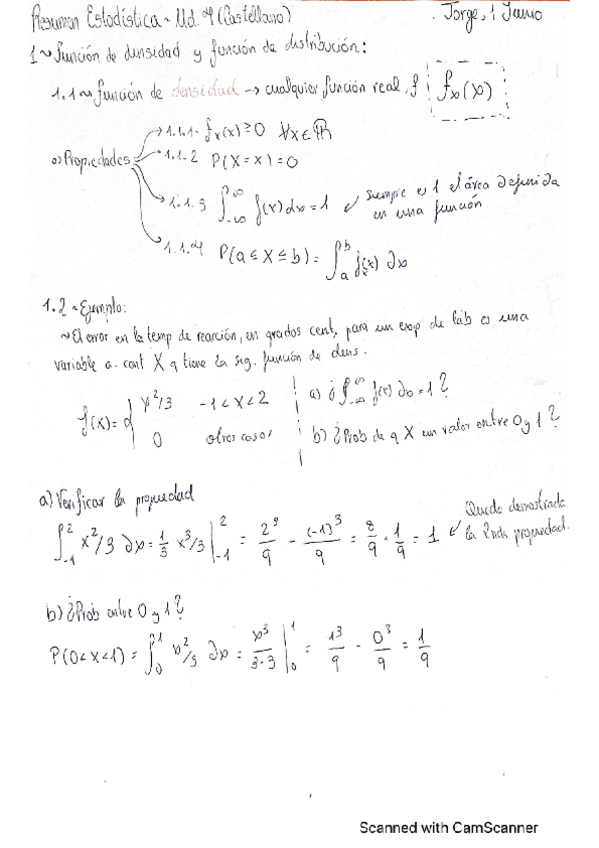 Resumen Estadística ~ Ud. 4 (Castellano)
Jorge, 1 Junio
1 ~ Función de densidad y función de distribución:
1.1 ~ función de densidad → cualquier función real, f
fx(x)
o) Propiedades
1.1.1 - fx(x) ≥ 0 ∀x ∈ ℝ
1.1.2 P(X = x) = 0
1.1.3 ∫_{-∞}^{∞} f(x) dx = 1 ↙ siempre es 1 el área definida
en una función
1.1.4 P(a ≤ X ≤ b) = ∫_a^b fx(x) dx
1.2 ~ Ejemplo:
~ El error en la temp de reacción, en grados cent, para un exp de lab es una
variable a. cont X q tiene la sig. función de dens.
f(x) = { x²/3 -1 < x < 2
0 otros casos
a) ¿ ∫_{-∞}^{∞} f(x) dx = 1 ?
b) ¿Prob de q X un valor entre 0 y 1 ?
a) Verificar la propiedad
∫_{-1}^{2} x²/3 dx = 1/3 x³/3 |_{-1}^{2} = 2³/9 - (-1)³/9 = 8/9 + 1/9 = 1 ↙ Queda demostrada
la 2nda propiedad.
b) ¿Prob entre 0 y 1 ?
P(0 < x < 1) = ∫_0^1 x²/3 dx = x³/3·3 |_0^1 = 1³/9 - 0³/9 = 1/9
Scanned with CamScanner